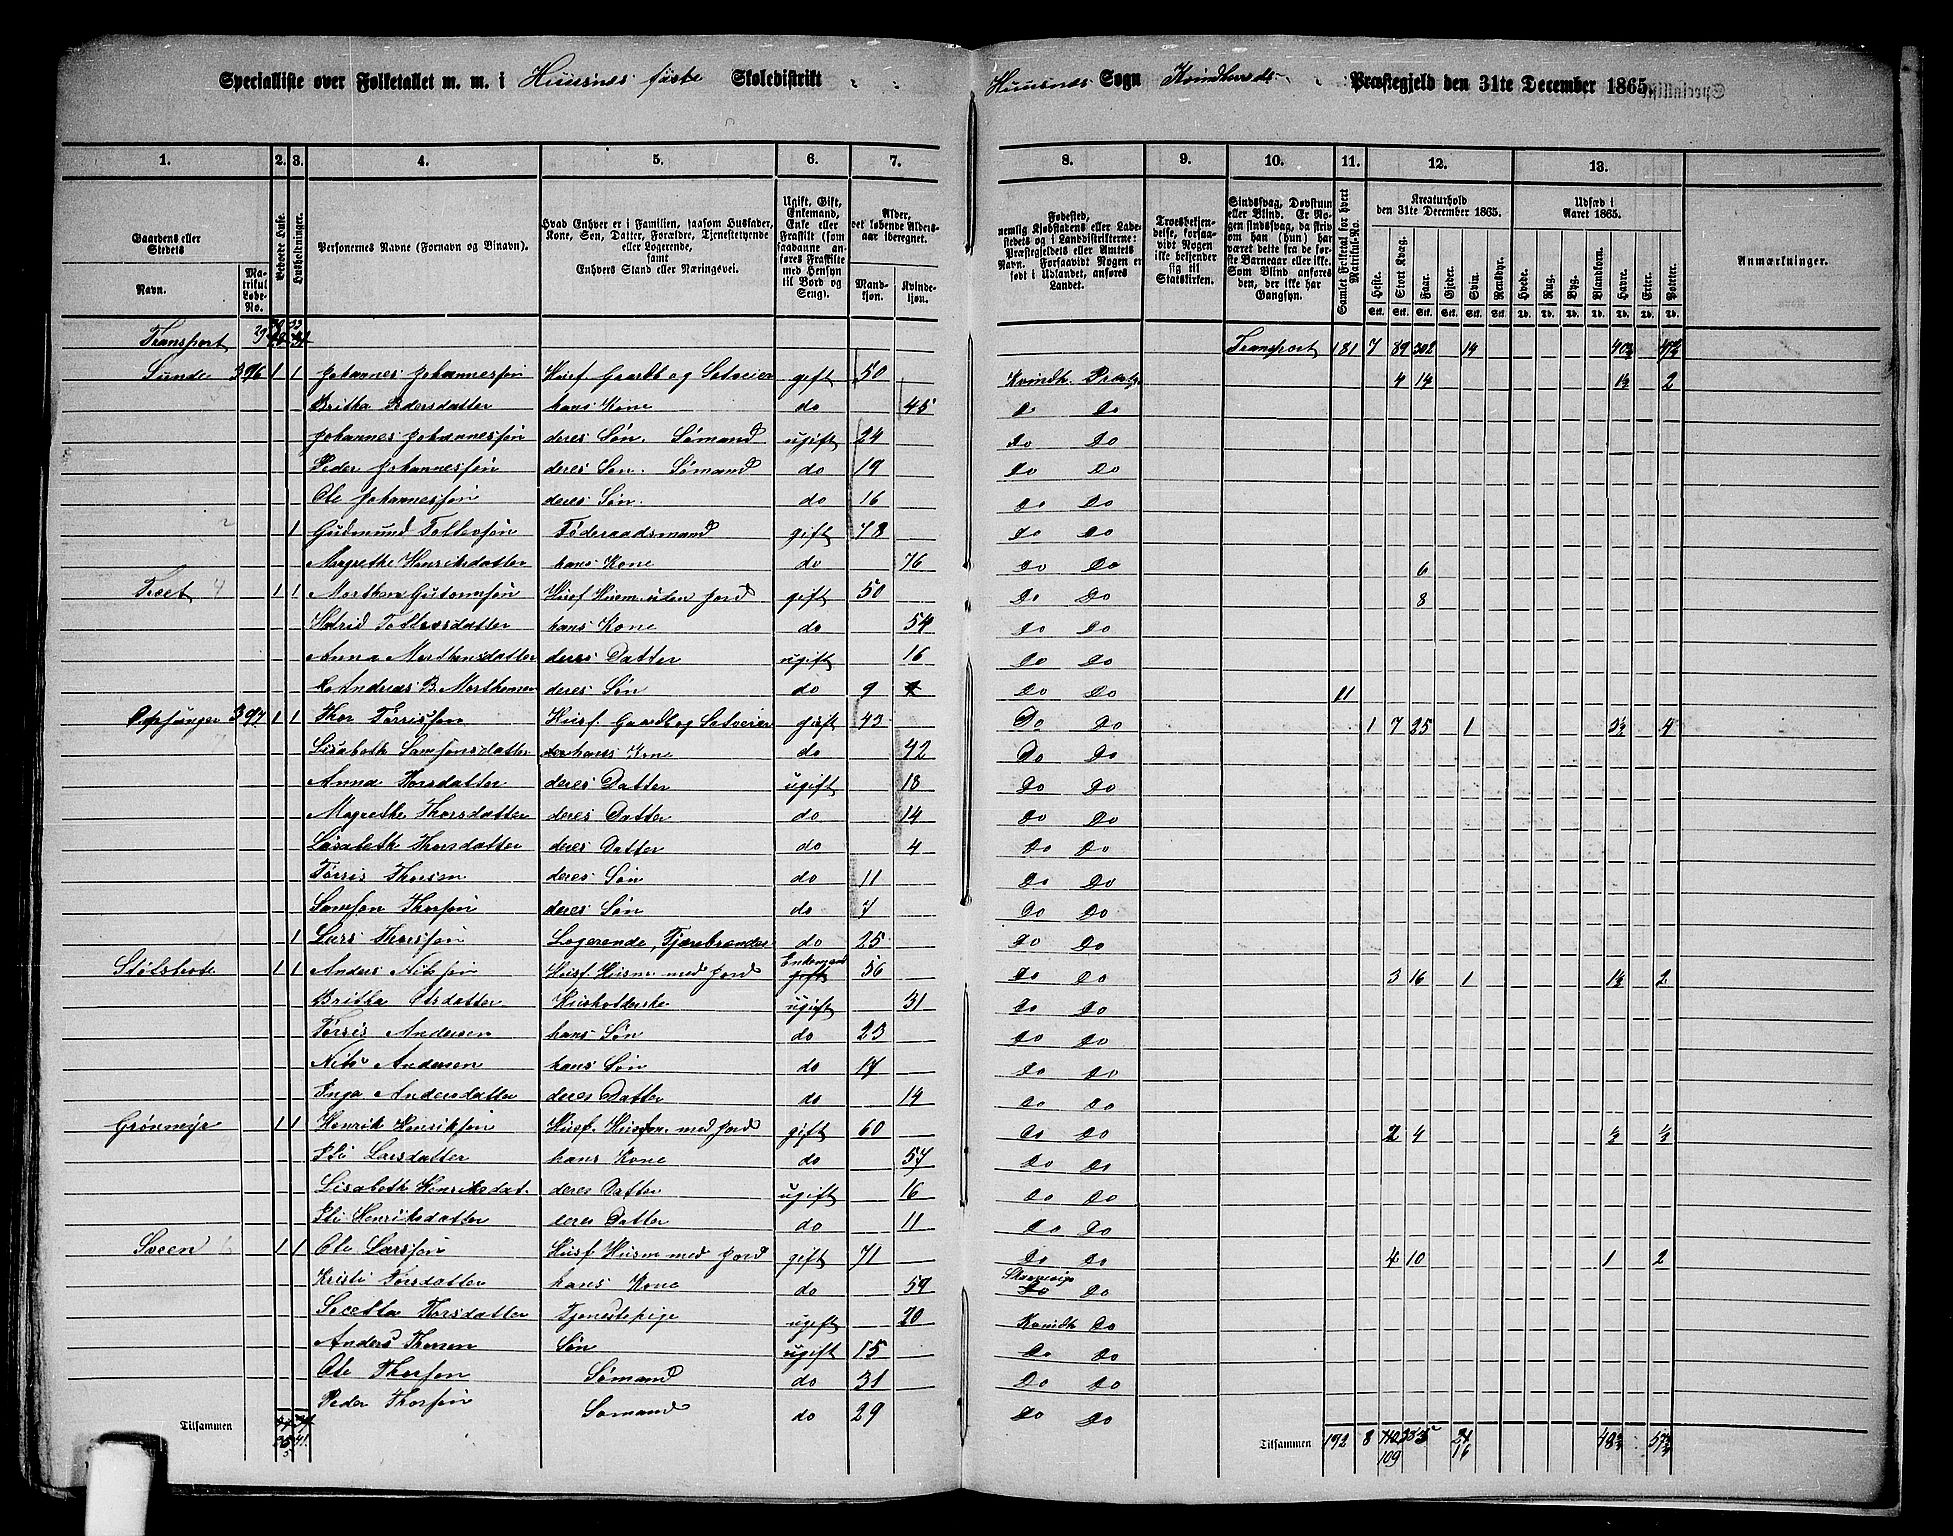 Specialliste over Folketallet m. m. i Huusnes første Skoledistrikt
Huusnes Sogn Kvindherreds Præstegjeld den 31te December 1865.
1. 2. 3. 4. 5. 6. 7. 8. 9. 10. 11. 12. 13.
Gaardens eller Stedets
Navn.
Matrikul Løbe-No.
Beboede Huse.
Husholdninger.
Personernes Navne (Fornavn og Binavn).
Hvad Enhver er i Familien, saasom Husfader, Kone, Søn, Datter, Forældre, Tjenestetyende eller Logerende, samt Enhvers Stand eller Næringsvei.
Ugift, Gift, Enkemand, Enke eller Fraskilt (som saadanne anføres Fraskilte med Hensyn til Bord og Seng).
Alder, det løbende Aldersaar iberegnet.
Mandkjøn.
Kvindekjøn.
Fødested, nemlig Kjøbstadens eller Ladestedets og i Landdistrikterne: Præstegjeldets eller Amtets Navn. Forsaavidt Nogen er født i Udlandet, anføres Landet.
Troesbekjendelse, forsaavidt Nogen ikke bekjender sig til Statskirken.
Sindssvag, Døvstum eller Blind. Er Nogen sindssvag, da skrives om han (hun) har været dette fra de første Barneaar eller ikke. Som Blind anføres den, der ikke har Gangsyn.
Samlet Folketal for hvert Matrikul-No.
Kreaturhold den 31te December 1865.
Heste. Stort Kvæg. Faar. Gjeder. Svin. Rensdyr.
Udsæd i Aaret 1865.
Hvede. Rug. Byg. Blandkorn. Havre. Erter. Poteter.
Anmærkninger.
Transport Transport 181 7 89 302 14
Sunde 396 1 1 Johannes Johannessøn Husf Gaardb og Selveier gift 50 Kvindh. Præstgj 4 14 1½ 2
Britha Pedersdatter hans Kone do 45 Do Do
Johannes Johannessøn deres Søn. Sømand ugift 24 Do Do
Peder Johannessøn deres Søn. Sømand do 19 Do Do
Ole Johannessøn deres Søn. do 16 Do Do
1 Gudmund Tollevsøn Føderaadsmand gift 78 Do Do
Margrethe Henriksdatter hans Kone do 76 Do Do 6
Træet 1 1 Morthen Gutormsøn Husf Husm. uden Jord gift 50 Do Do 8
Tollevsdatter hans Kone do 54 Do Do
Anna Morthensdatter deres Datter ugift 16 Do Do
Andreas B. Morthensen deres Søn do 9 Do Do 11
Opsanger 397 1 1 Thor Tørrissøn Husf Gaardb og Selveier gift 43 Do Do 1 7 25 1 3½ 4
Lisabeth Samsonsdatter hans Kone do 42 Do Do
Anna Thorsdatter deres Datter ugift 18 Do Do
Magrethe Thorsdatter deres Datter do 14 Do Do
Lisabeth Thorsdatter deres Datter do 4 Do Do
Tørris Thorsen deres Søn do 11 Do Do
Samson Thorsøn deres Søn do 7 Do Do
1 Lars Thorsøn Logerende, Tjærebrænder do 25 Do Do
Stølshote 1 1 Anders Nilsøn Husf. Husm med Jord Enkemand gift 56 Do Do 3 16 1 1½ 2
Britha Olsdatter Husholderske ugift 31 Do Do
Tørris Andersen hans Søn do 23 Do Do
Nils Andersen hans Søn do 17 Do Do
Inga Andersdatter deres Datter do 14 Do Do
Grønmyr 1 1 Henrik Henriksøn Husf. Husm. med Jord gift 60 Do Do 2 4 ½ ½
Eli Larsdatter hans Kone do 57 Do Do
Lisabeth Henriksdat. deres Datter ugift 16 Do Do
Eli Henriksdatter deres Datter do 11 Do Do
Sveen 1 1 Ole Larssøn Husf Husm med Jord gift 71 Do Do 4 10 1 2
Kristi Torsdatter hans Kone do 59 Do Do
Thorsdatter Tjenestepige ugift 20 Kvindh Do
Anders Thorsen Søn ugift 15 Do Do
Ole Thorsøn Sømand do 31 Do Do
Peder Thorsøn Sømand do 29 Do Do
Tilsammen Tilsammen 192 8 109 16